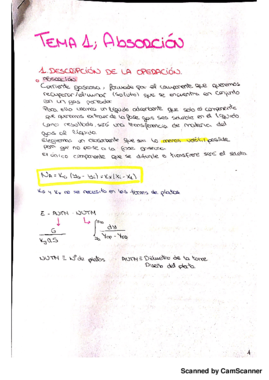 TEMA 1; Absorción
1. DESCRIPCIÓN DE LA OPERACIÓN.
ABSORCIÓN:
Corriente gaseosa, formada por el componente que queremos
recuperar/eliminar (soluto) que se encuentra en conjunto
con un gas portador.
Para ello usamos un líquido absorbente que solo el componente
que queremos extraer de la fase gas sea soluble en el líquido
como resultado, será una transferencia de materia del
gas al líquido.
Elegiremos un absorbente que sea lo menos volátil posible
para que no pase a la fase gaseosa.
El único componente que se difunde o transfiere será el soluto.
Kg y Kx no se necesita en las torres de platos
E = AUTM · NUTM
G
Kg a S
dy
NUTM ≡ Nº de platos
AUTM ≡ Diámetro de la torre
Diseño del plato
1
Scanned by CamScanner